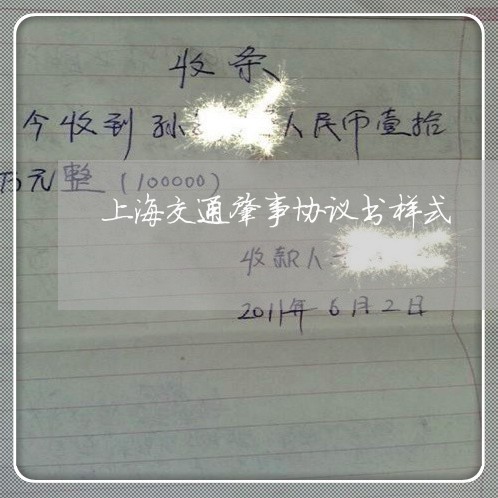 收条
今收到孙 人民币壹拾
万元整(100000)
上海交通肇事协议书样式
收款人
2011年6月2日